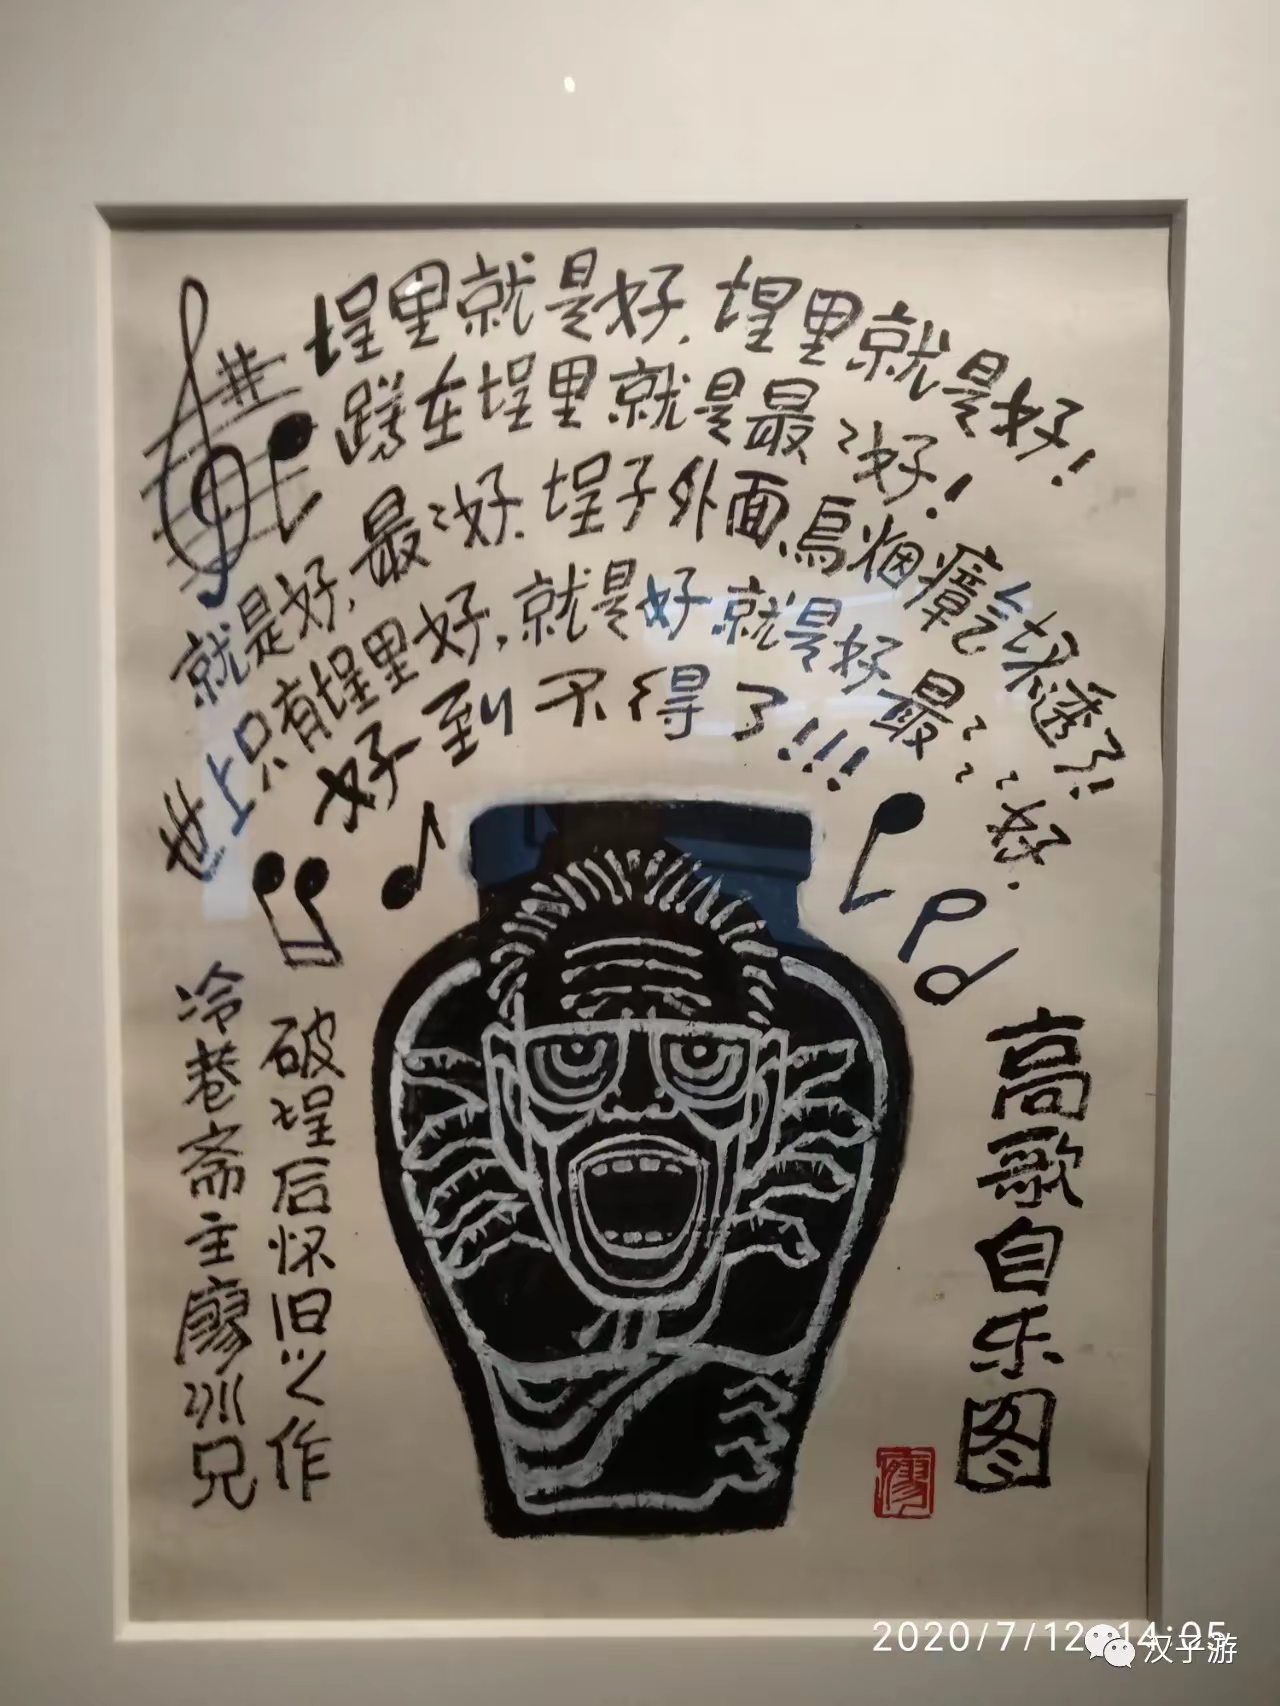 埕里就是好,埕里就是好!
蹲在埕里就是最〻好!
就是好,最〻好.埕子外面、烏烟瘴气坏透了!
世上只有埕里好,就是好,就是好,最〻〻〻好.
好到不得了!!!
高歌自乐图
破埕后怀旧之作
冷巷斋主廖冰兄
廖
2020/7/12 14:05
汉子游